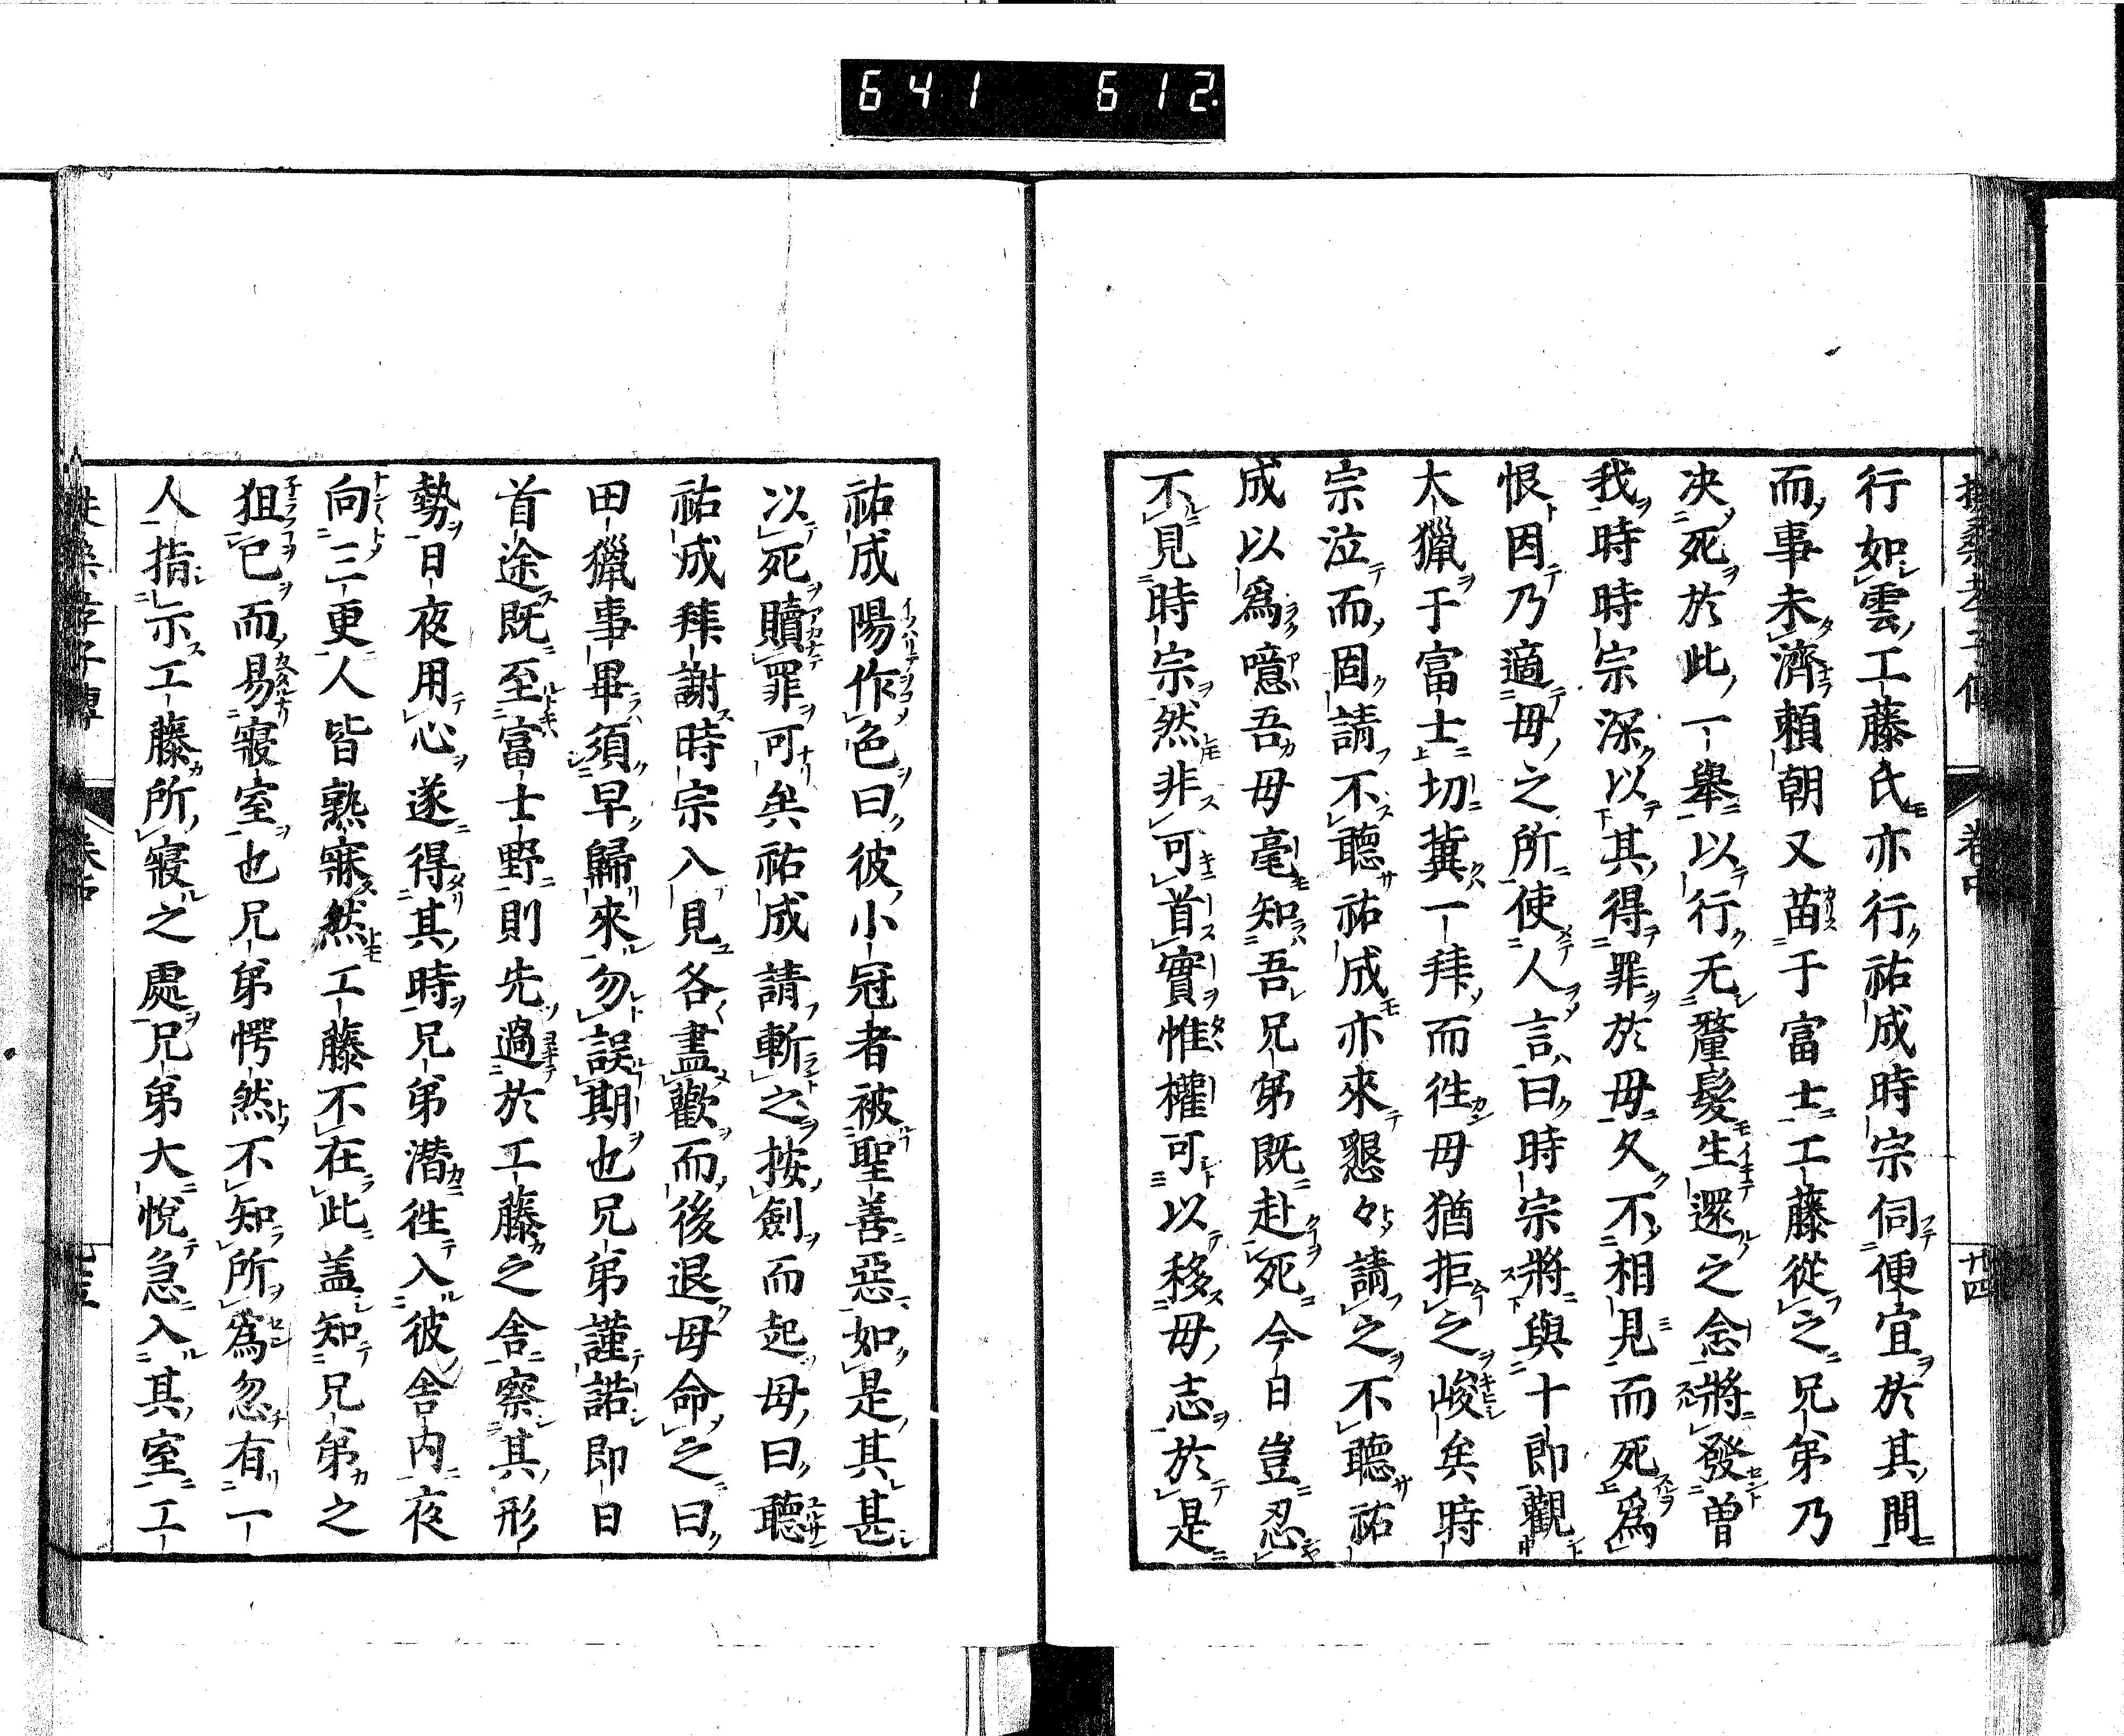 641 612.
卷中
廿四
行如雲工藤氏亦行祐成時宗伺便宜於其間
而事未濟頼朝又苗于富士工藤從之兄弟乃
决死於此一擧以行无釐髮生還之念將發曽
我時時宗深以其得罪於毋久不相見而死爲
恨因乃適毋之所使人言曰時宗將與十郎觀
大獵于富士切冀一拜而徃毋猶拒之峻矣時
宗泣而固請不聽祐成亦來懇々請之不聽祐
成以爲噫吾毋毫知吾兄弟既赴死今日豈忍
不見時宗然非可首實惟權可以移毋志於是
祐成陽作色曰彼小冠者被聖善惡如是其甚
以死贖罪可矣祐成請斬之按劍而起毋曰聽
祐成拜謝時宗入見各盡歡而後退毋命之曰
田獵事畢須早歸來勿誤期也兄弟謹諾即日
首途既至富士野則先過於工藤之舍察其形
勢日夜用心遂得其時兄弟潜徃入彼舍内夜
向三更人皆熟寐然工藤不在此盖知兄弟之
狙已而易寢室也兄弟愕然不知所爲忽有一
人指示工藤所寢之處兄弟大悅急入其室工